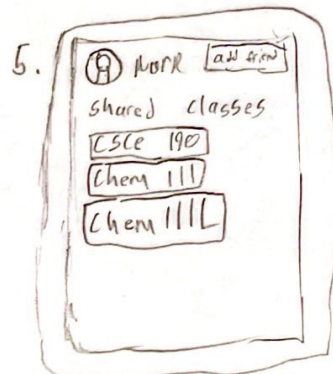 5.
Mark add friend
shared classes
CSCE 190
Chem 111
Chem 111L